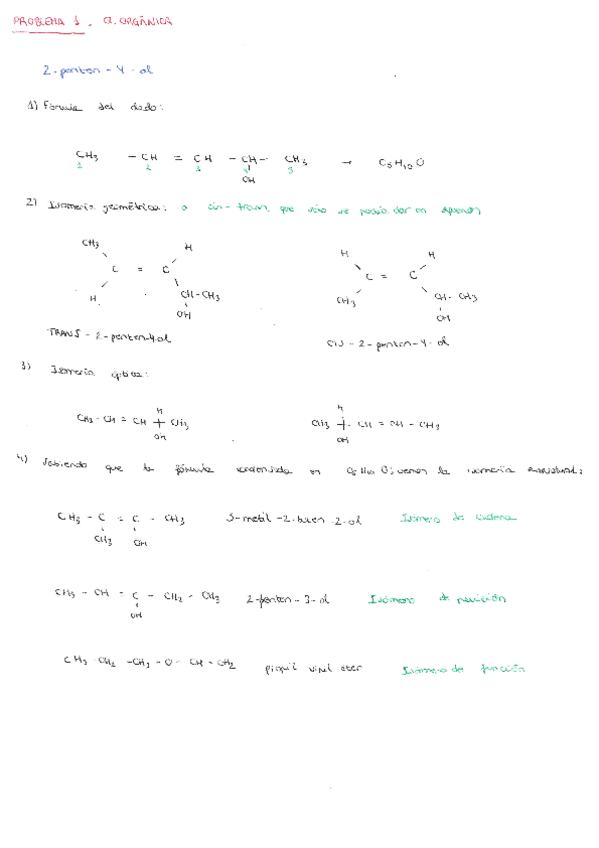 PROBLEMA 1. Q. ORGÁNICA
2-penten-4-ol
1) Fórmula del dado:
CH3 - CH = CH - CH - CH3 → C5H10O
1 2 3 4 5
OH
2) Isomería geométrica: o cis-trans, que solo se podía dar en alquenos
CH3 H H H
C = C C = C
H CH-CH3 CH3 CH-CH3
OH OH
TRANS-2-penten-4-ol CIS-2-penten-4-ol
3) Isomería óptica:
H H
CH3-CH = CH + CH3 CH3 + CH = CH - CH3
OH OH
4) Sabiendo que la fórmula condensada es C5H10O, vemos la isomería estructural:
CH3 - C = C - CH3 3-metil-2-buten-2-ol Isómero de cadena
CH3 OH
CH3 - CH = C - CH2 - CH3 2-penten-3-ol Isómero de posición
OH
CH3-CH2-CH2-O-CH=CH2 propil vinil éter Isómero de función